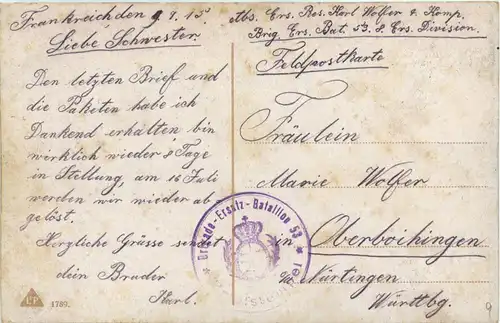 Frankreich, den 9.7.15.
Liebe Schwester
Den letzten Brief und
die Paketen habe ich
Dankend erhalten, bin
wirklich wieder 8 Tage
in Stellung, am 16 Juli
werden wir wieder ab
gelöst.
Herzliche Grüsse sendet
dein Bruder
Karl.
Abs. Ers. Res. Karl Wolfer 4. Komp.
Brig. Ers. Bat. 53. 8 Ers. Division.
Feldpostkarte
Fräulein
Marie Wolfer
in Oberboihingen
Nürtingen
Württbg.
Brigade-Ersatz-Bataillon 53.
1789.
9